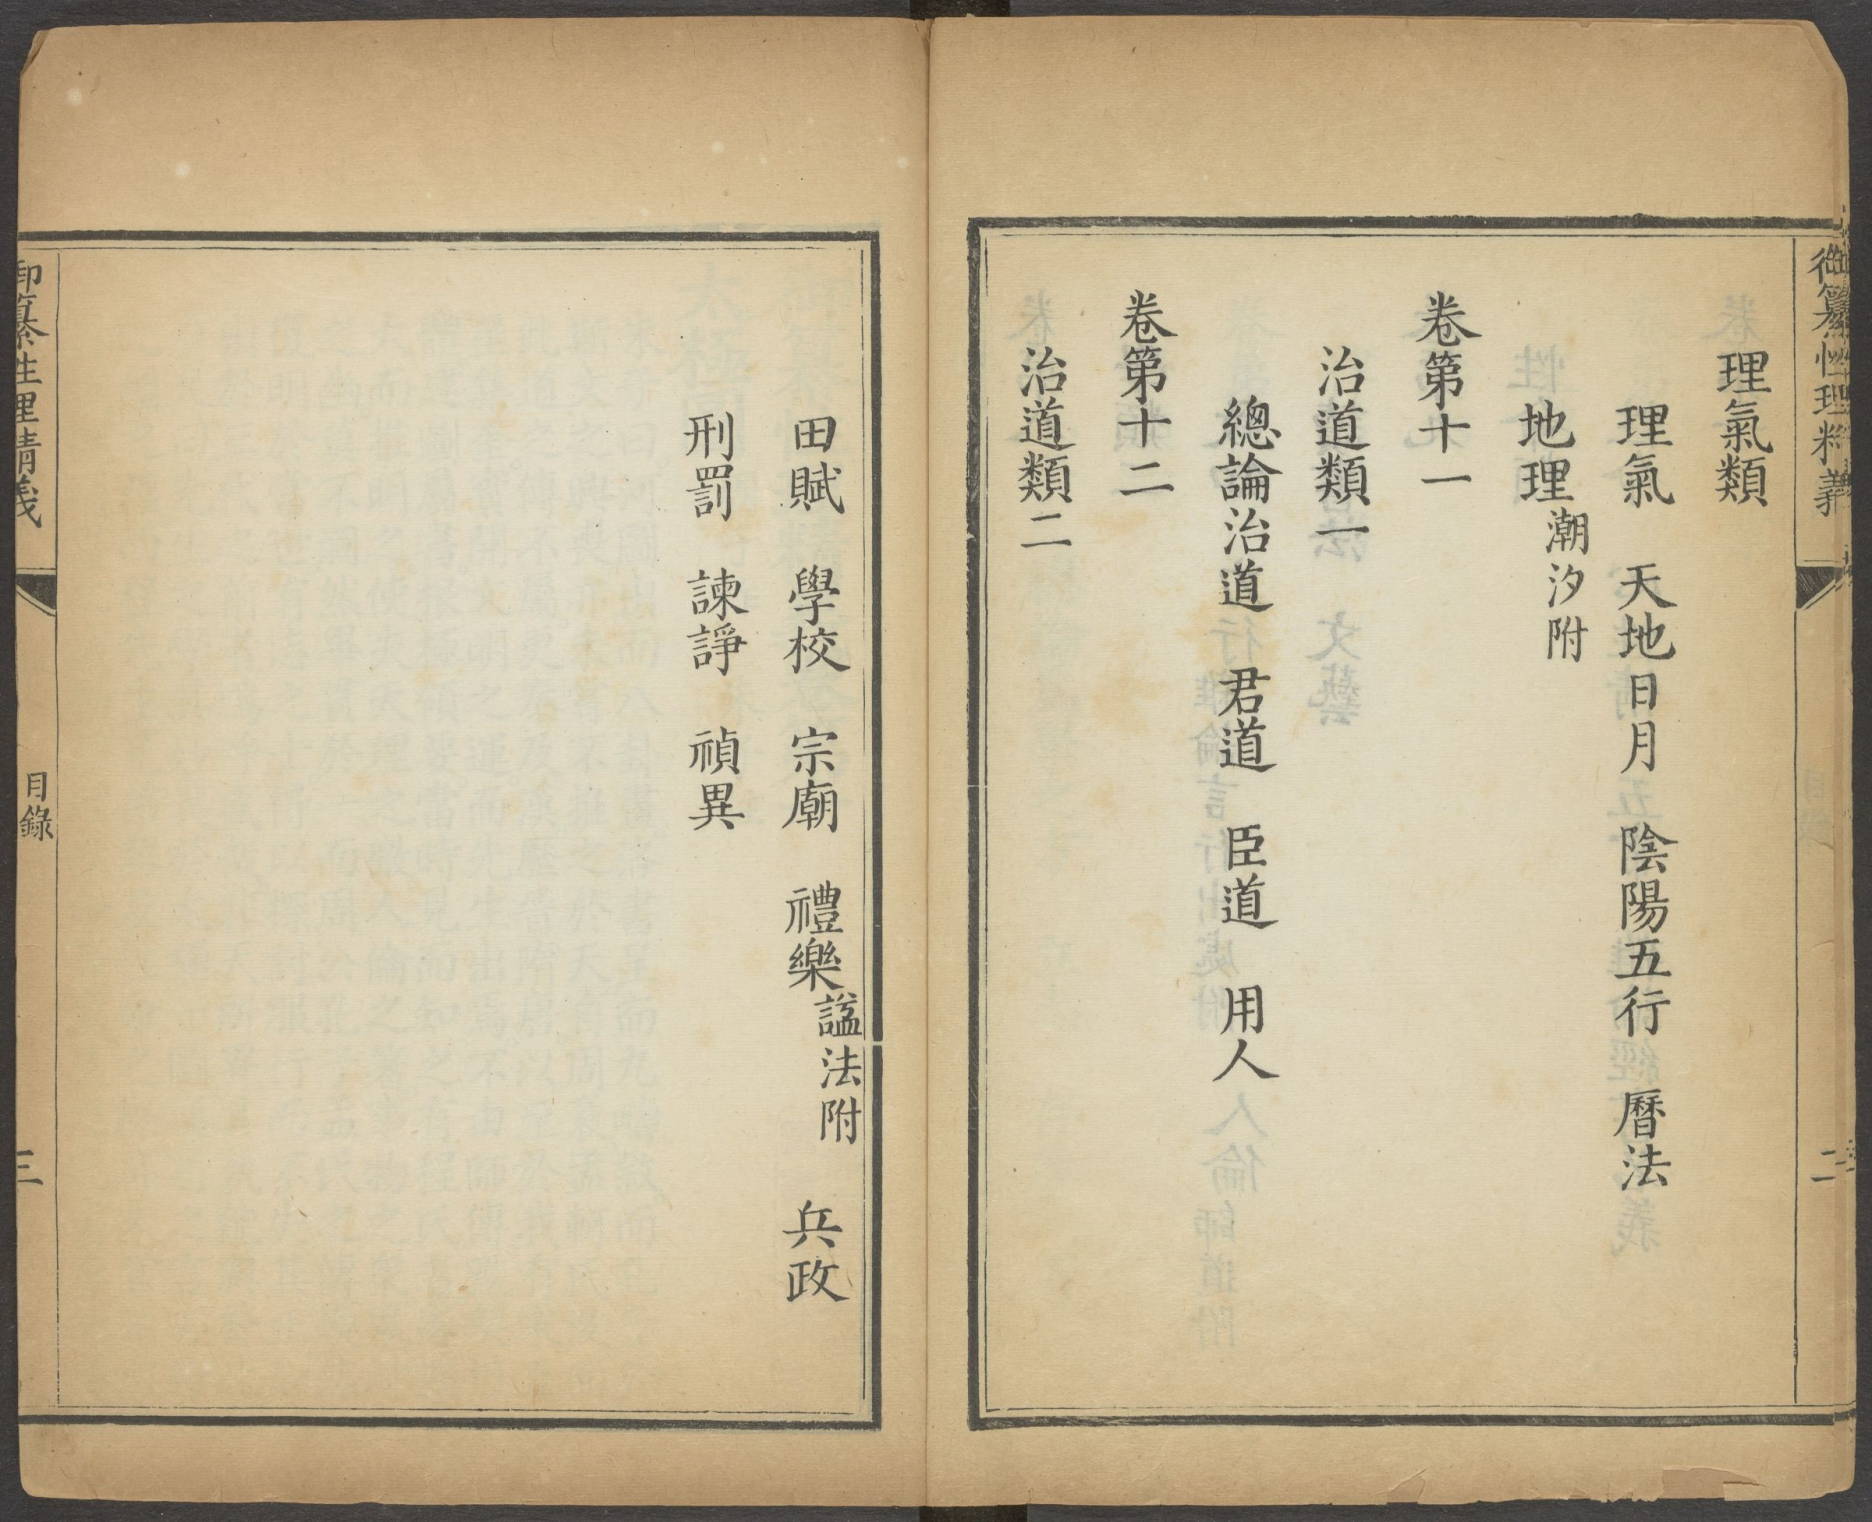 理氣類
理氣　天地日月　陰陽五行　曆法
地理潮汐附
卷第十一
治道類一
總論治道　君道　臣道　用人
卷第十二
治道類二
田賦　學校　宗廟　禮樂諡法附　兵政
刑罰　諫諍　禎異
御纂性理精義
目錄
三